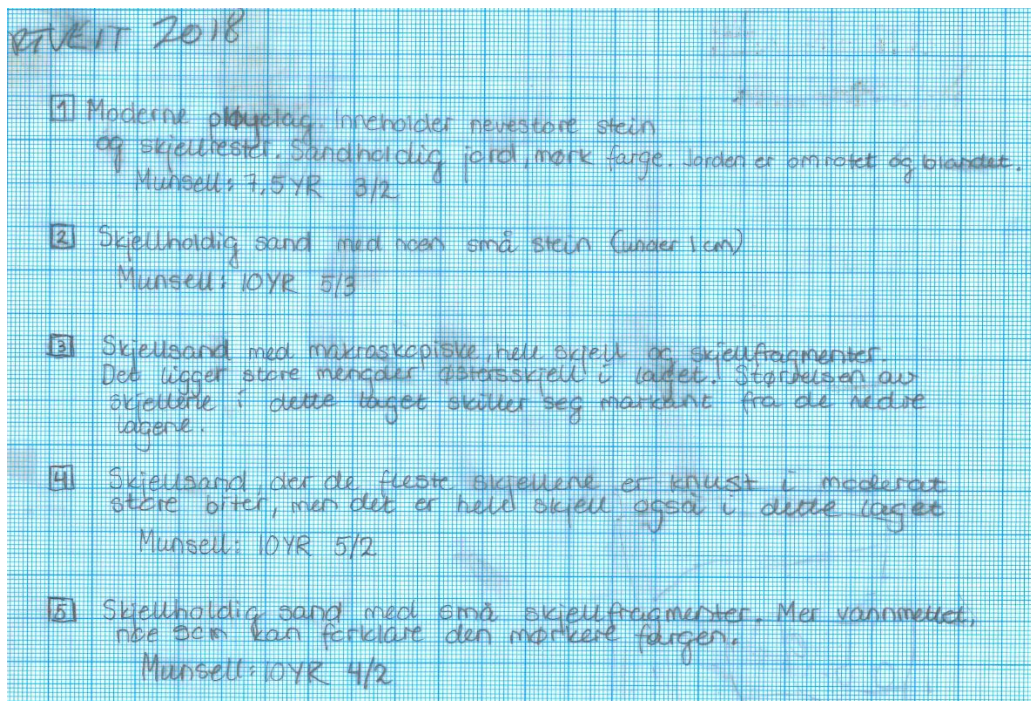 RTVEIT 2018
1 Moderne pløyelag. Inneholder nevestore stein
og skjellrester. Sandholdig jord, mørk farge. Jorden er omrotet og blandet.
Munsell: 7,5 YR 3/2
2 Skjellholdig sand med noen små stein (under 1 cm)
Munsell: 10YR 5/3
3 Skjellsand med makroskopiske, hele skjell og skjellfragmenter.
Det ligger store mengder østersskjell i laget. Størrelsen av
skjellene i dette laget skiller seg markant fra de nedre
lagene.
4 Skjellsand der de fleste skjellene er knust i moderat
store biter, men det er hele skjell også i dette laget
Munsell: 10YR 5/2
5 Skjellholdig sand med små skjellfragmenter. Mer vannmettet,
noe som kan forklare den mørkere fargen.
Munsell: 10YR 4/2